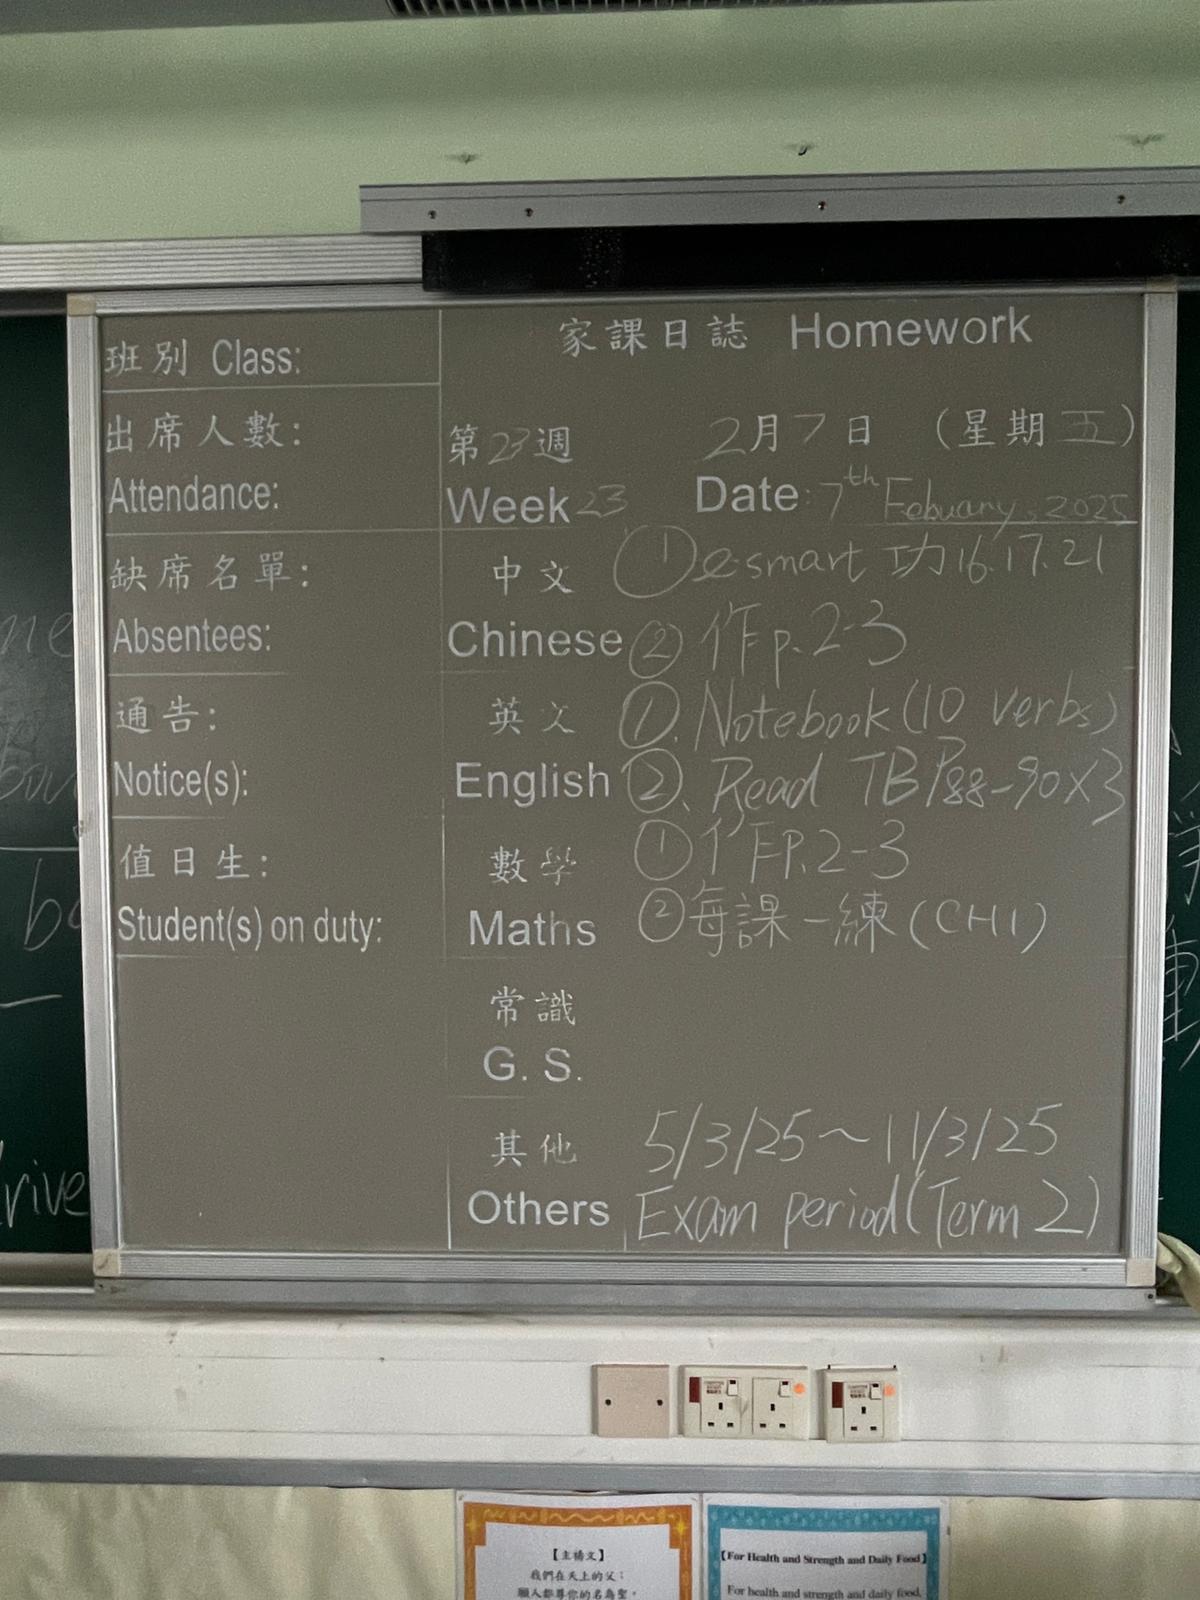 家課日誌 Homework
班別 Class:
出席人數:
Attendance:
缺席名單:
Absentees:
通告:
Notice(s):
值日生:
Student(s) on duty:
第23週
2月7日 (星期五)
Week 23
Date: 7th Febuary, 2025
中文
Chinese
① e-smart 功16.17.21
② 作p.2-3
英文
English
①. Notebook (10 verbs)
②. Read TB P88-90x3
數學
Maths
① 作P.2-3
② 每課一練 (CH1)
常識
G. S.
其他
Others
5/3/25~11/3/25
Exam period (Term 2)
rive
【主禱文】
我們在天上的父:
願人都尊你的名為聖。
【For Health and Strength and Daily Food】
For health and strength and daily food,